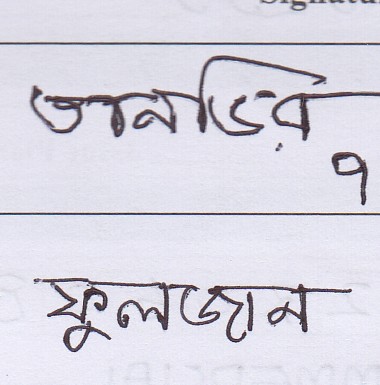 Signatu
তানভির
ফুলজান